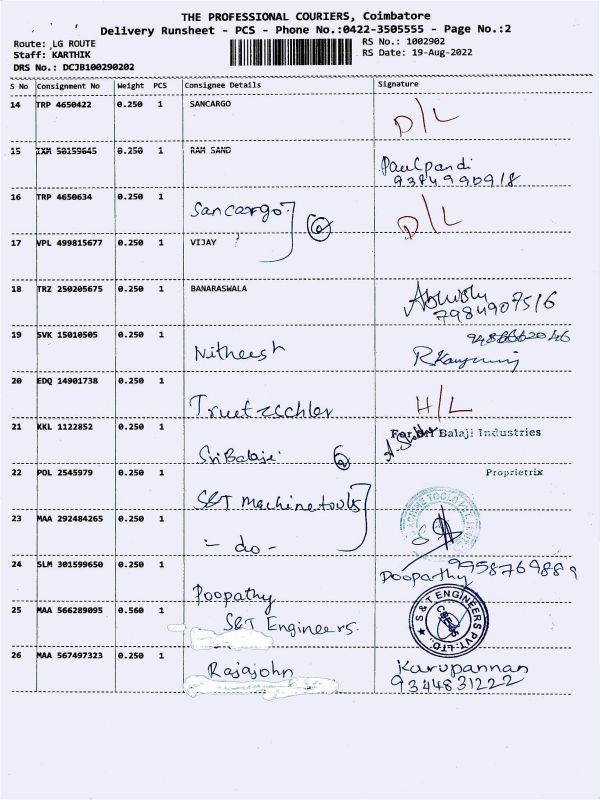 THE PROFESSIONAL COURIERS, Coimbatore
Delivery Runsheet - PCS - Phone No.:0422-3505555 - Page No.:2
Route: LG ROUTE
Staff: KARTHIK
DRS No.: DCJB100290202
RS No.: 1002902
RS Date: 19-Aug-2022
S No Consignment No Weight PCS Consignee Details Signature
14 TRP 4650422 0.250 1 SANCARGO D/L
15 IXM 50159645 0.250 1 RAM SAND Paulpandi
9384990918
16 TRP 4650634 0.250 1 Sancargo D/L
17 VPL 499815677 0.250 1 VIJAY
18 TRZ 250205675 0.250 1 BANARASWALA
7984907516
19 SVK 15010505 0.250 1 Nitheesh
20 EDQ 14901738 0.250 1 Truetzschler H/L
21 KKL 1122852 0.250 1 Sri Balaji For Sri Balaji Industries
22 POL 2545979 0.250 1 S&T Machinetools Proprietrix
23 MAA 292484265 0.250 1 - do -
24 SLM 301599650 0.250 1 Poopathy Poopathy 9958769889
25 MAA 566289095 0.560 1 S&T Engineers. S & T ENGINEERS PVT. LTD.
26 MAA 567497323 0.250 1 Rajajohn Karupannan
9344831222